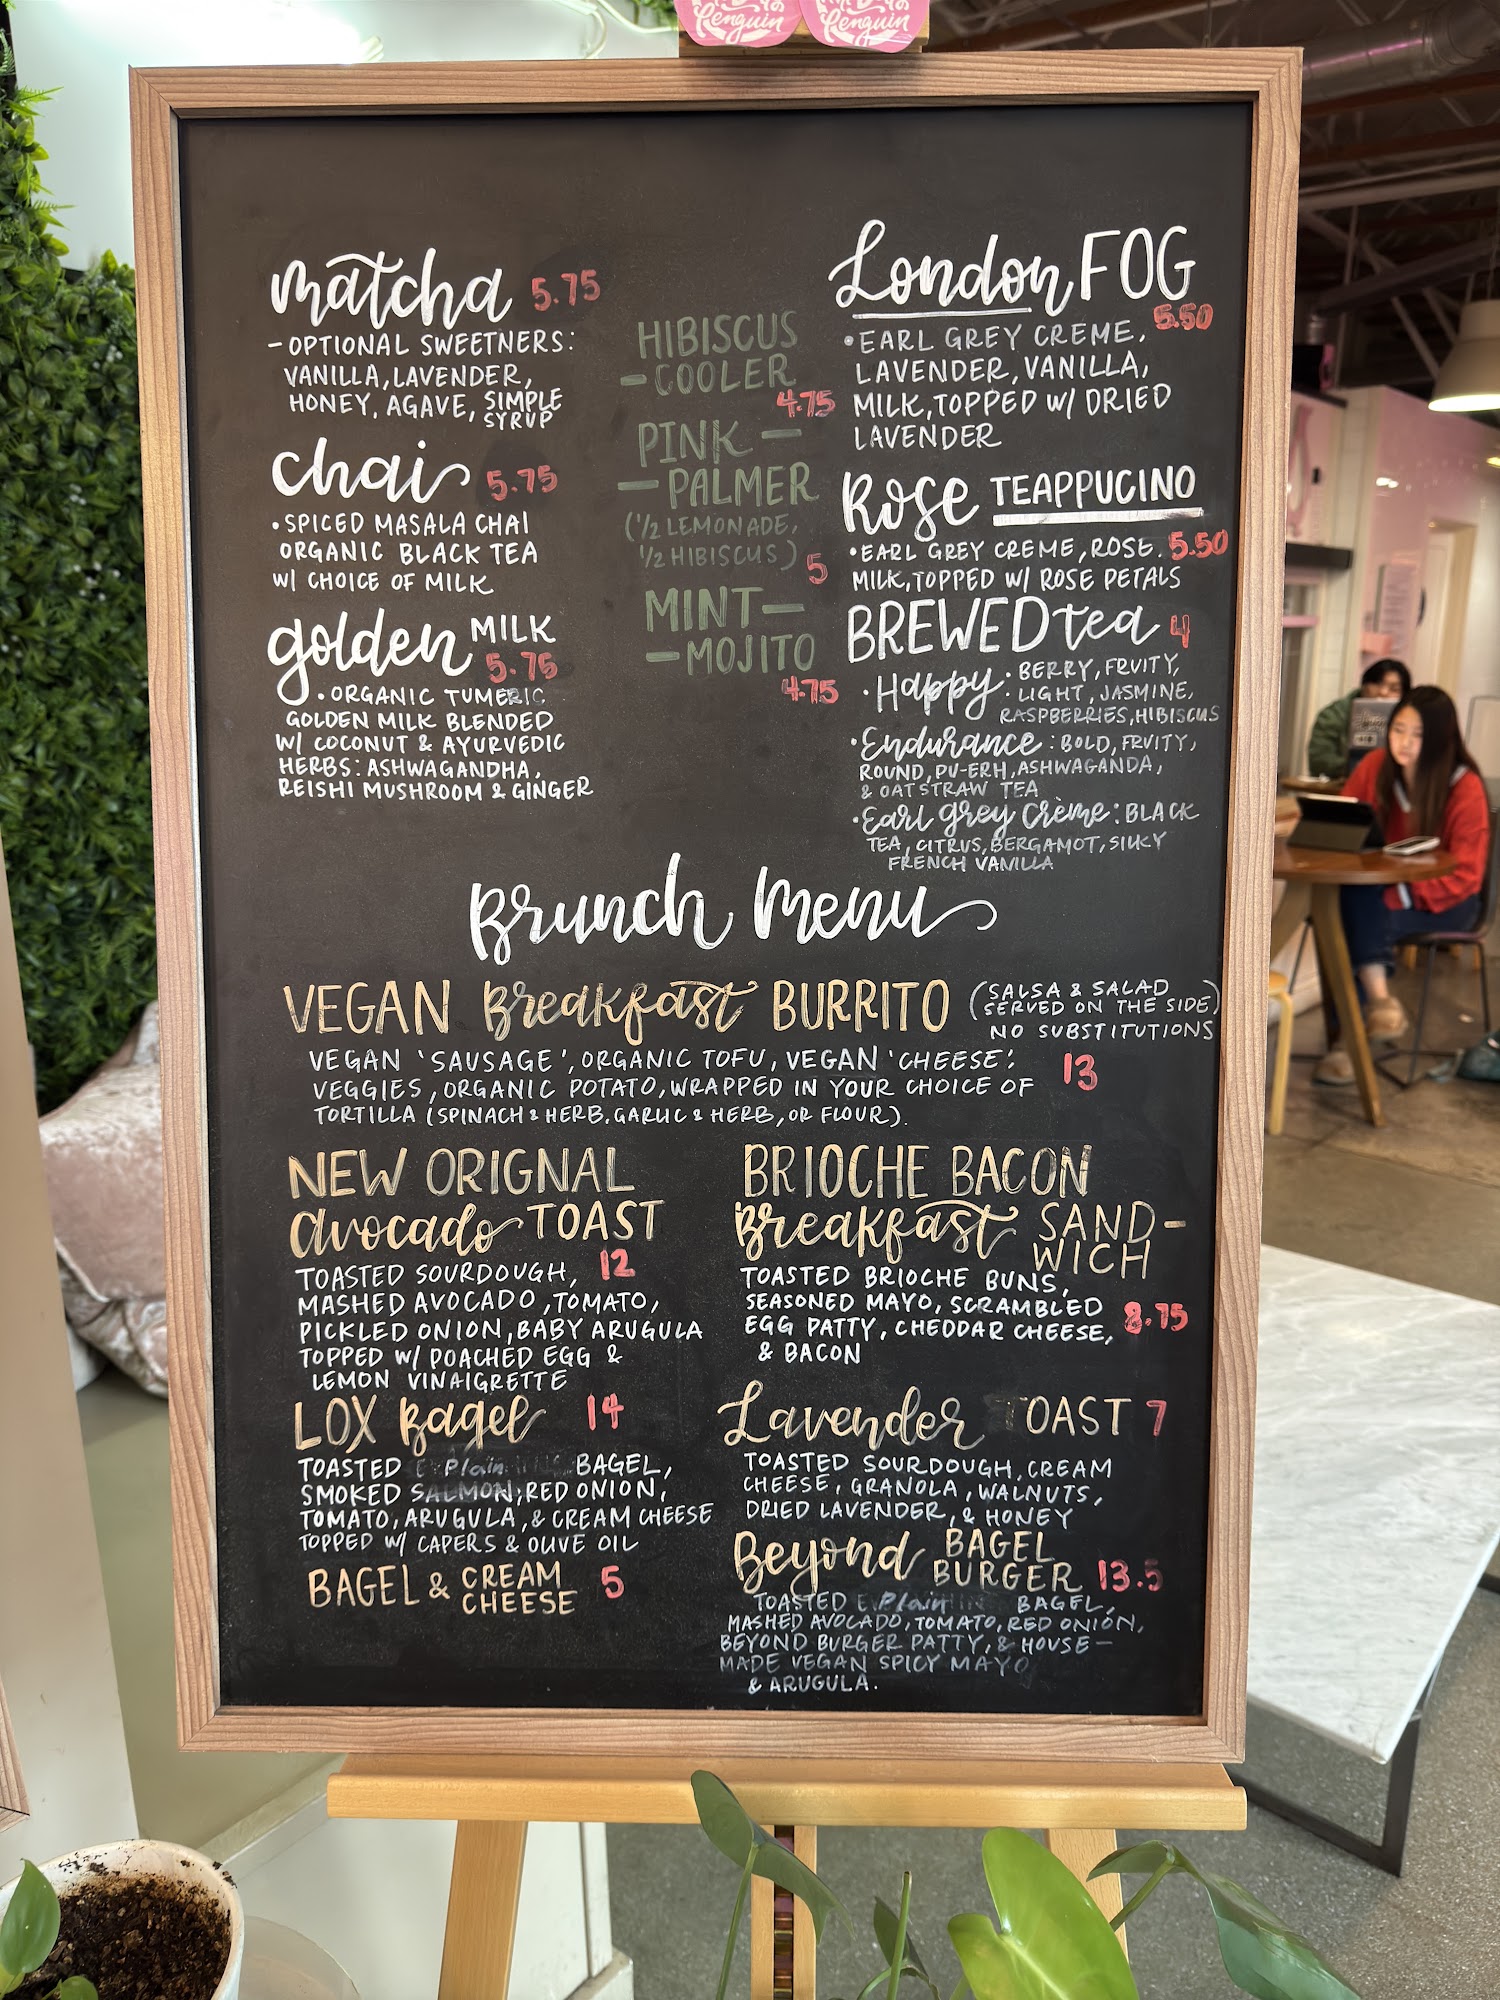 Penguin
Penguin
matcha 5.75
- OPTIONAL SWEETNERS:
VANILLA, LAVENDER,
HONEY, AGAVE, SIMPLE
SYRUP
chai 5.75
• SPICED MASALA CHAI
ORGANIC BLACK TEA
W/ CHOICE OF MILK
golden MILK
5.75
• ORGANIC TUMERIC
GOLDEN MILK BLENDED
W/ COCONUT & AYURVEDIC
HERBS: ASHWAGANDHA,
REISHI MUSHROOM & GINGER
HIBISCUS
- COOLER
4.75
PINK -
- PALMER
(1/2 LEMONADE,
1/2 HIBISCUS) 5
MINT -
- MOJITO
4.75
London FOG
5.50
• EARL GREY CREME,
LAVENDER, VANILLA,
MILK, TOPPED W/ DRIED
LAVENDER
Rose TEAPPUCINO
• EARL GREY CREME, ROSE. 5.50
MILK, TOPPED W/ ROSE PETALS
BREWED tea 4
• Happy: BERRY, FRUITY,
LIGHT, JASMINE,
RASPBERRIES, HIBISCUS
• Endurance: BOLD, FRUITY,
ROUND, PU-ERH, ASHWAGANDA,
& OATSTRAW TEA
• Earl Grey Crème: BLACK
TEA, CITRUS, BERGAMOT, SILKY
FRENCH VANILLA
Brunch Menu
VEGAN Breakfast BURRITO (SALSA & SALAD
SERVED ON THE SIDE)
NO SUBSTITUTIONS
VEGAN 'SAUSAGE', ORGANIC TOFU, VEGAN 'CHEESE', 13
VEGGIES, ORGANIC POTATO, WRAPPED IN YOUR CHOICE OF
TORTILLA (SPINACH & HERB, GARLIC & HERB, OR FLOUR).
NEW ORIGNAL
avocado TOAST
12
TOASTED SOURDOUGH,
MASHED AVOCADO, TOMATO,
PICKLED ONION, BABY ARUGULA
TOPPED W/ POACHED EGG &
LEMON VINAIGRETTE
LOX Bagel 14
TOASTED Plain BAGEL,
SMOKED SALMON, RED ONION,
TOMATO, ARUGULA, & CREAM CHEESE
TOPPED W/ CAPERS & OLIVE OIL
BAGEL & CREAM
CHEESE 5
BRIOCHE BACON
Breakfast SAND-
WICH
TOASTED BRIOCHE BUNS,
SEASONED MAYO, SCRAMBLED
EGG PATTY, CHEDDAR CHEESE, 8.75
& BACON
Lavender TOAST 7
TOASTED SOURDOUGH, CREAM
CHEESE, GRANOLA, WALNUTS,
DRIED LAVENDER, & HONEY
Beyond BAGEL
BURGER 13.5
TOASTED Plain BAGEL,
MASHED AVOCADO, TOMATO, RED ONION,
BEYOND BURGER PATTY, & HOUSE-
MADE VEGAN SPICY MAYO
& ARUGULA.